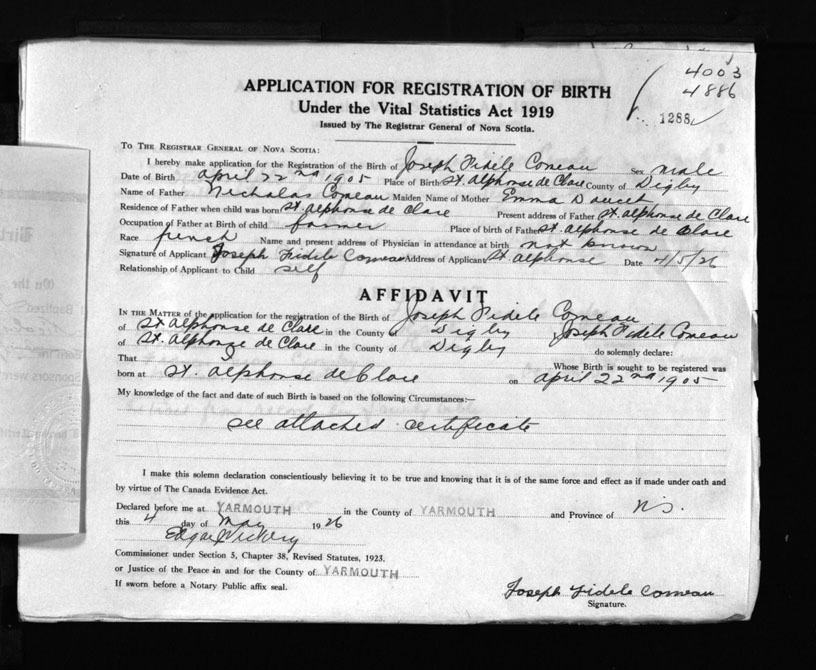 4003
4886
1288
APPLICATION FOR REGISTRATION OF BIRTH
Under the Vital Statistics Act 1919
Issued by The Registrar General of Nova Scotia.
TO THE REGISTRAR GENERAL OF NOVA SCOTIA:
I hereby make application for the Registration of the Birth of Joseph Fidele Comeau Sex male
Date of Birth april 22nd 1905 Place of Birth St. Alphonse de Clare County of Digby
Name of Father Nicholas Comeau Maiden Name of Mother Emma Doucet
Residence of Father when child was born St. Alphonse de Clare Present address of Father St. Alphonse de Clare
Occupation of Father at Birth of child farmer Place of birth of Father St. Alphonse de Clare
Race french Name and present address of Physician in attendance at birth not known
Signature of Applicant Joseph Fidele Comeau Address of Applicant St. Alphonse Date 4/5/26
Relationship of Applicant to Child self
AFFIDAVIT
IN THE MATTER of the application for the registration of the Birth of Joseph Fidele Comeau
of St. Alphonse de Clare in the County of Digby Joseph Fidele Comeau
of St. Alphonse de Clare in the County of Digby do solemnly declare:
That Whose Birth is sought to be registered was
born at St. Alphonse de Clare on april 22nd 1905
My knowledge of the fact and date of such Birth is based on the following Circumstances:—
see attached certificate
I make this solemn declaration conscientiously believing it to be true and knowing that it is of the same force and effect as if made under oath and
by virtue of The Canada Evidence Act.
Declared before me at YARMOUTH in the County of YARMOUTH and Province of N.S.
this 4 day of May 1926
Edgar Vickery
Commissioner under Section 5, Chapter 38, Revised Statutes, 1923.
or Justice of the Peace in and for the County of YARMOUTH
If sworn before a Notary Public affix seal.
Joseph Fidele Comeau
Signature.